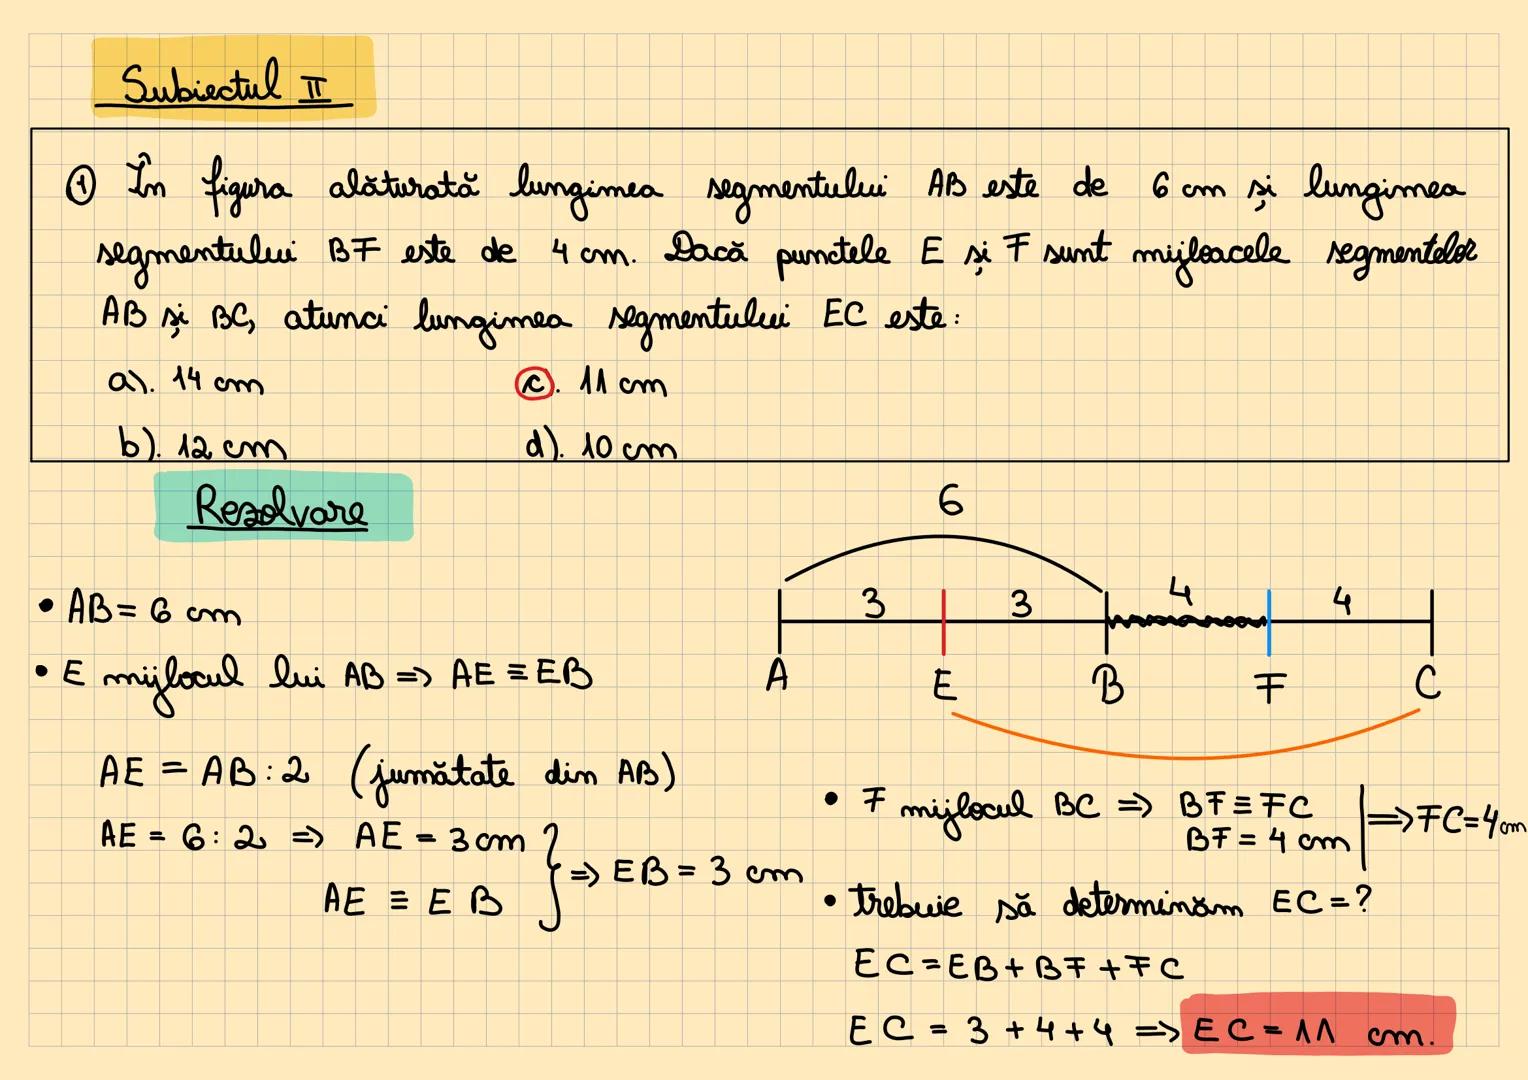 Subiectul II
① În figura alăturată lungimea segmentului AB este de 6 cm și lungimea
segmentului BF este de 4 cm. Dacă punctele E și F sunt mijloacele segmentelor
AB și BC, atunci lungimea segmentului EC este:
a). 14 cm c). 11 cm
b). 12 cm d). 10 cm
Rezolvare
• AB = 6 cm
• E mijlocul lui AB => AE ≡ EB
AE = AB : 2 (jumătate din AB)
AE = 6 : 2 => AE = 3 cm
AE ≡ EB
=> EB = 3 cm
6
3 3 4 4
A E B F C
• F mijlocul BC => BF ≡ FC
BF = 4 cm
=> FC = 4 cm
• trebuie să determinăm EC = ?
EC = EB + BF + FC
EC = 3 + 4 + 4 => EC = 11 cm.